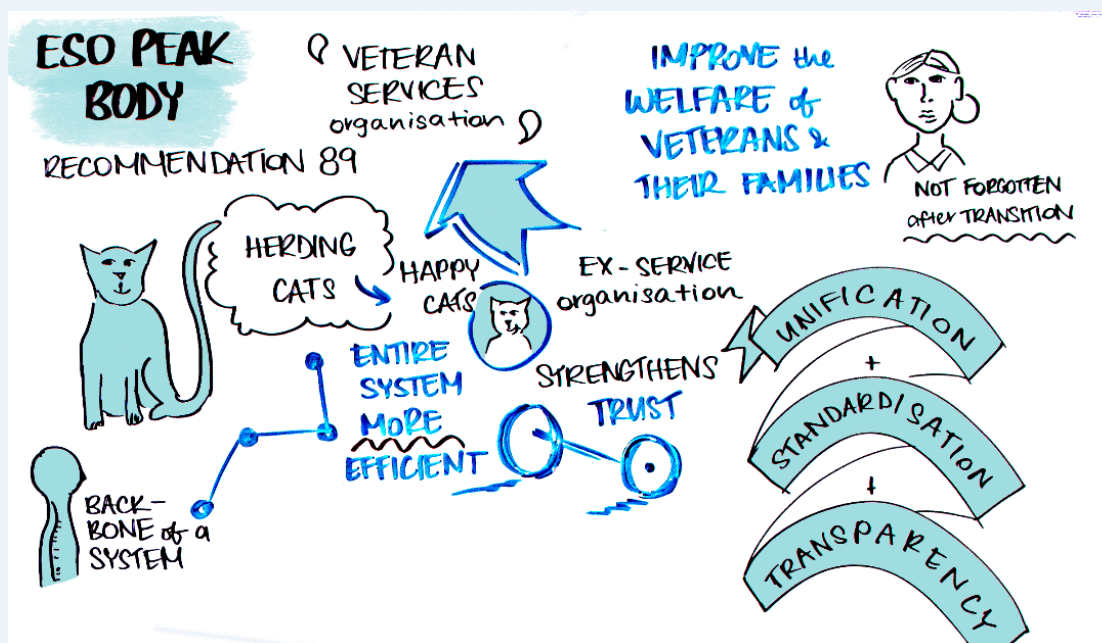 ESO PEAK
BODY
RECOMMENDATION 89
VETERAN
SERVICES
organisation
IMPROVE the
WELFARE of
VETERANS &
THEIR FAMILIES
NOT FORGOTTEN
after TRANSITION
HERDING
CATS
HAPPY
CATS
EX-SERVICE
organisation
ENTIRE
SYSTEM
MORE
EFFICIENT
STRENGTHENS
TRUST
BACK-
BONE of a
SYSTEM
UNIFICATION
+
STANDARDISATION
+
TRANSPARENCY